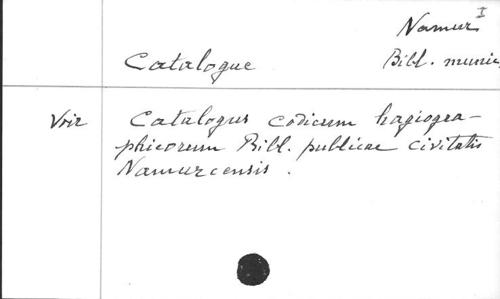 Namur I
Catalogue Bibl. munic.
Voir Catalogus codicum hagiogra-
phicorum Bibl. publicae civitatis
Namurcensis.